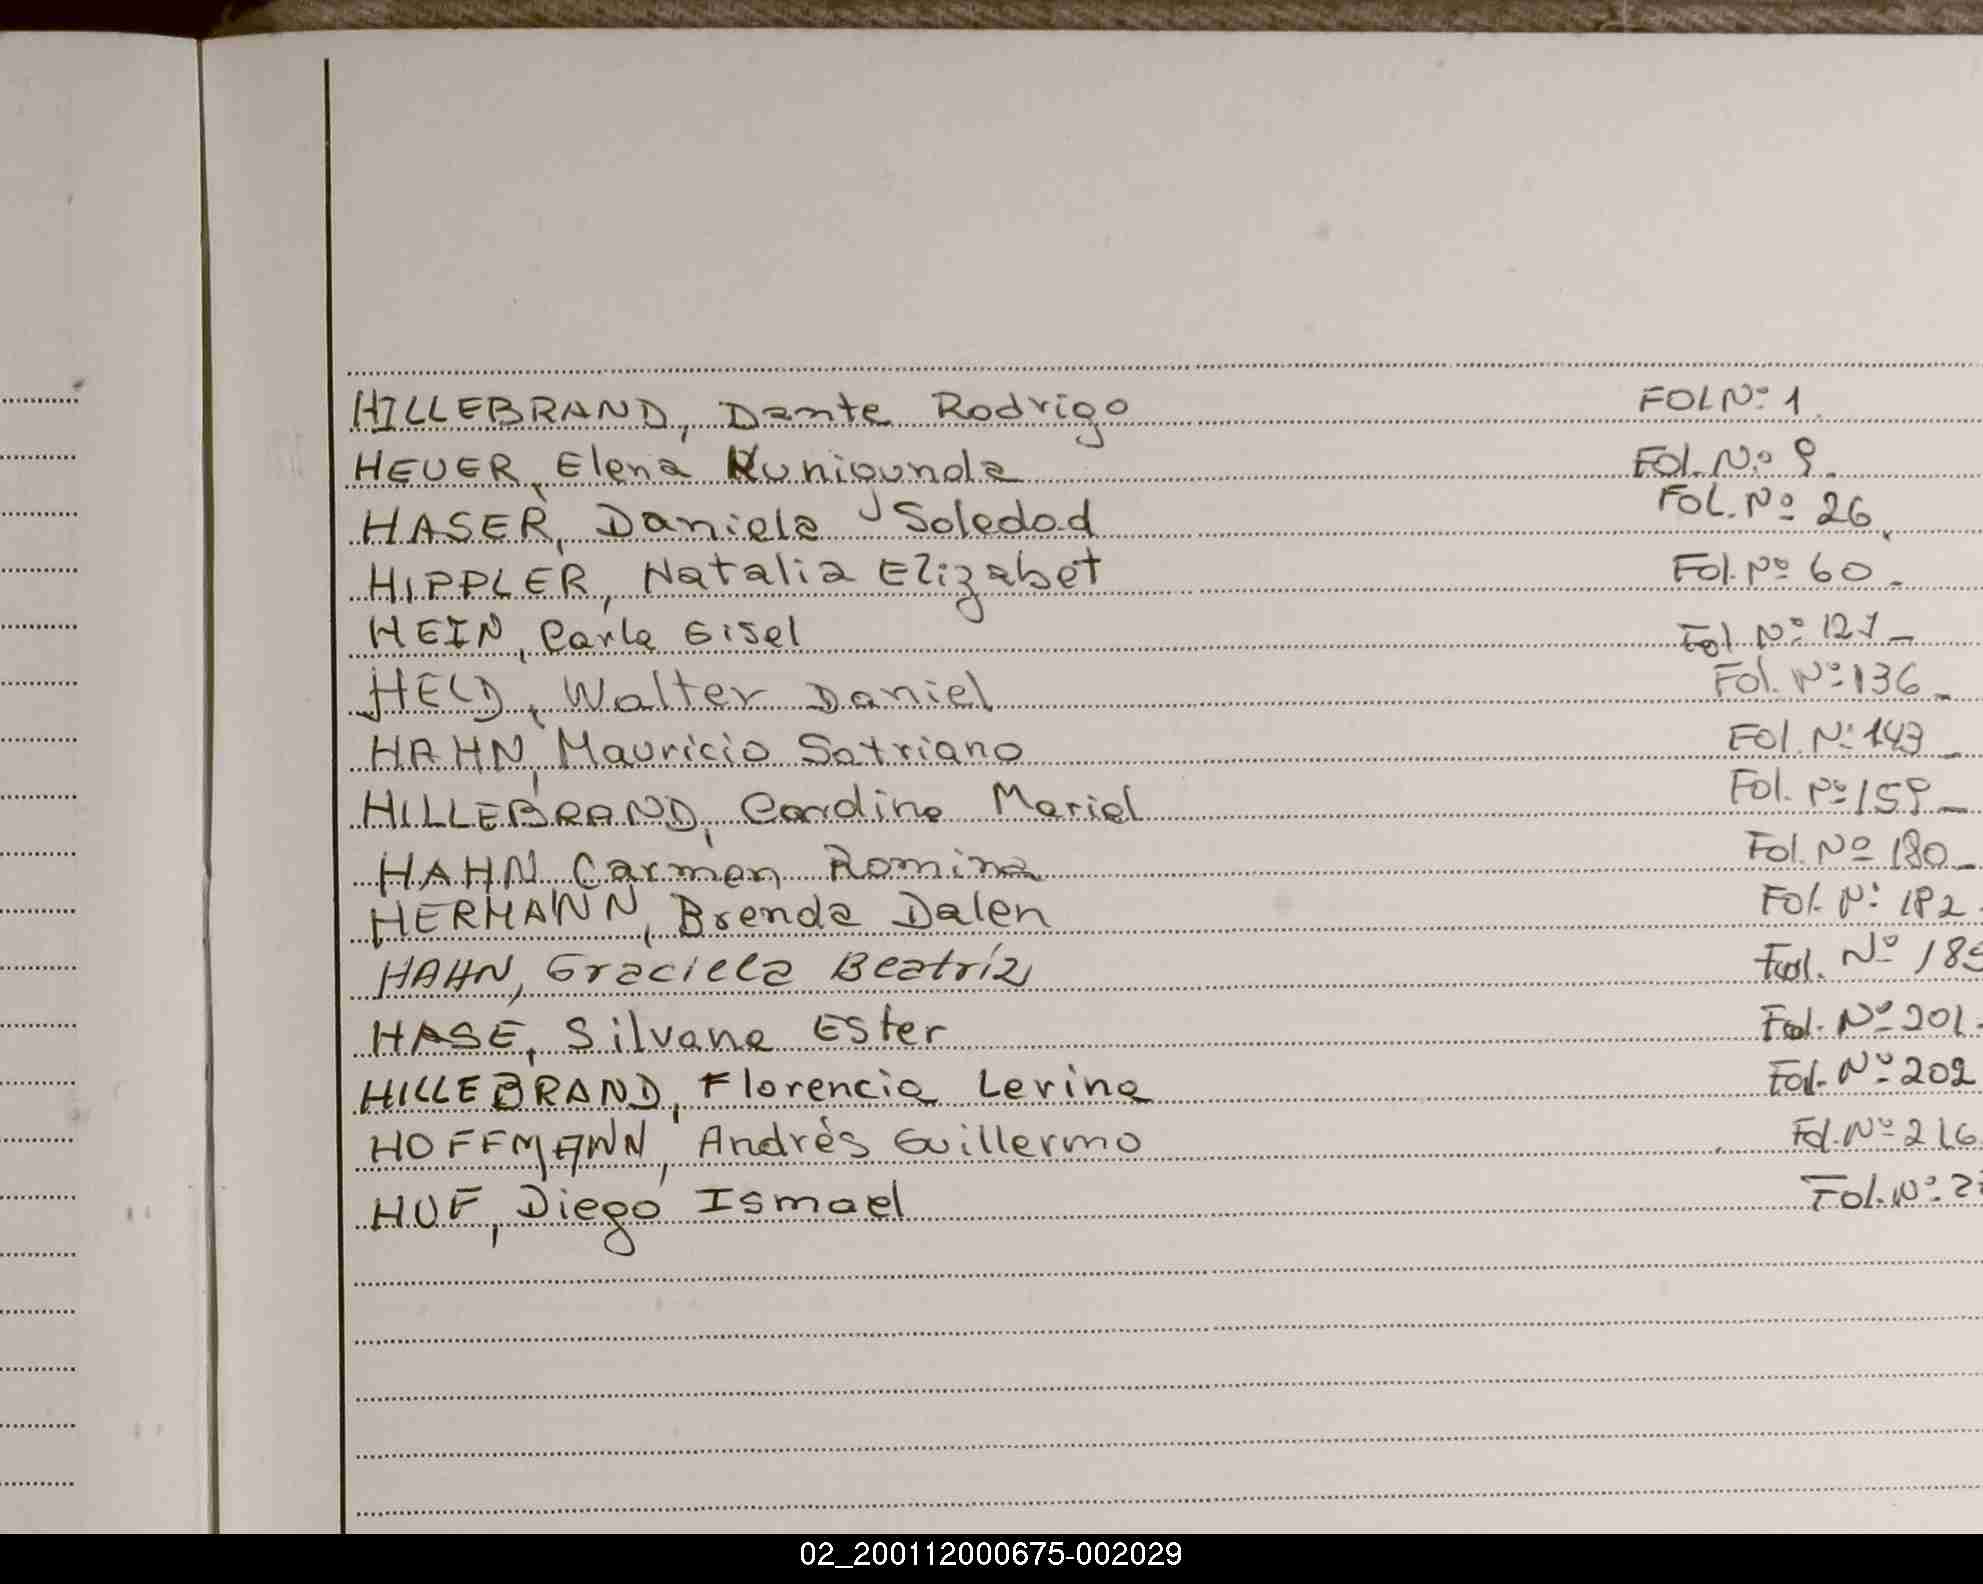 HILLEBRAND, Dante Rodrigo FOL Nº 1.
HEUER, Elena Kunigunda Fol. Nº 9.
HASER, Daniela Soledad FOL. Nº 26.
HIPPLER, Natalia Elizabet Fol. Nº 60.
HEIN, Carla Gisel Fol Nº 127_
HELD, Walter Daniel Fol. Nº 136_
HAHN, Mauricio Satriano Fol. Nº 143_
HILLEBRAND, Mariel Fol. Nº 159_
HAHN Carmen Romina Fol. Nº 180_
HERMANN, Brenda Dalen Fol. Nº 182.
HAHN, Graciela Beatríz Fol. Nº
HASE, Silvana Ester Fol. Nº 201.
HILLEBRAND, Florencia Levina Fol. Nº 202
HOFFMANN, Andrés Guillermo Fol. Nº 216
HUF, Diego Ismael Fol. Nº
02_200112000675-002029